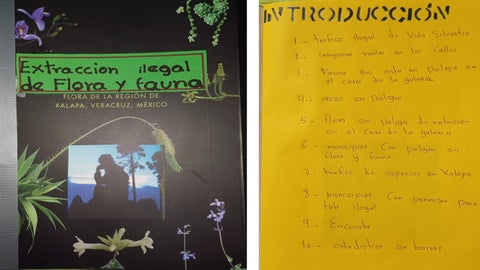 Extraccion ilegal
de Flora y fauna
FLORA DE LA REGIÓN DE
XALAPA, VERACRUZ, MÉXICO
INTRODUCCIÓN
1.- trafico ilegal de Vida Silvestre
2.- imagenes reales en las Calles
3. Fauna que esta en peligro en
el cerro de la galaxia
4.- aves en peligro
5.- flora en peligro de extinción
en el Cerro de la galaxia
6.- municipios Con peligro en
flora y fauna
7.- trafico de especies en Xalapa
8.- municipios Con permisos para
tala ilegal
9.- Encuesta
10.- estadisticas en barras